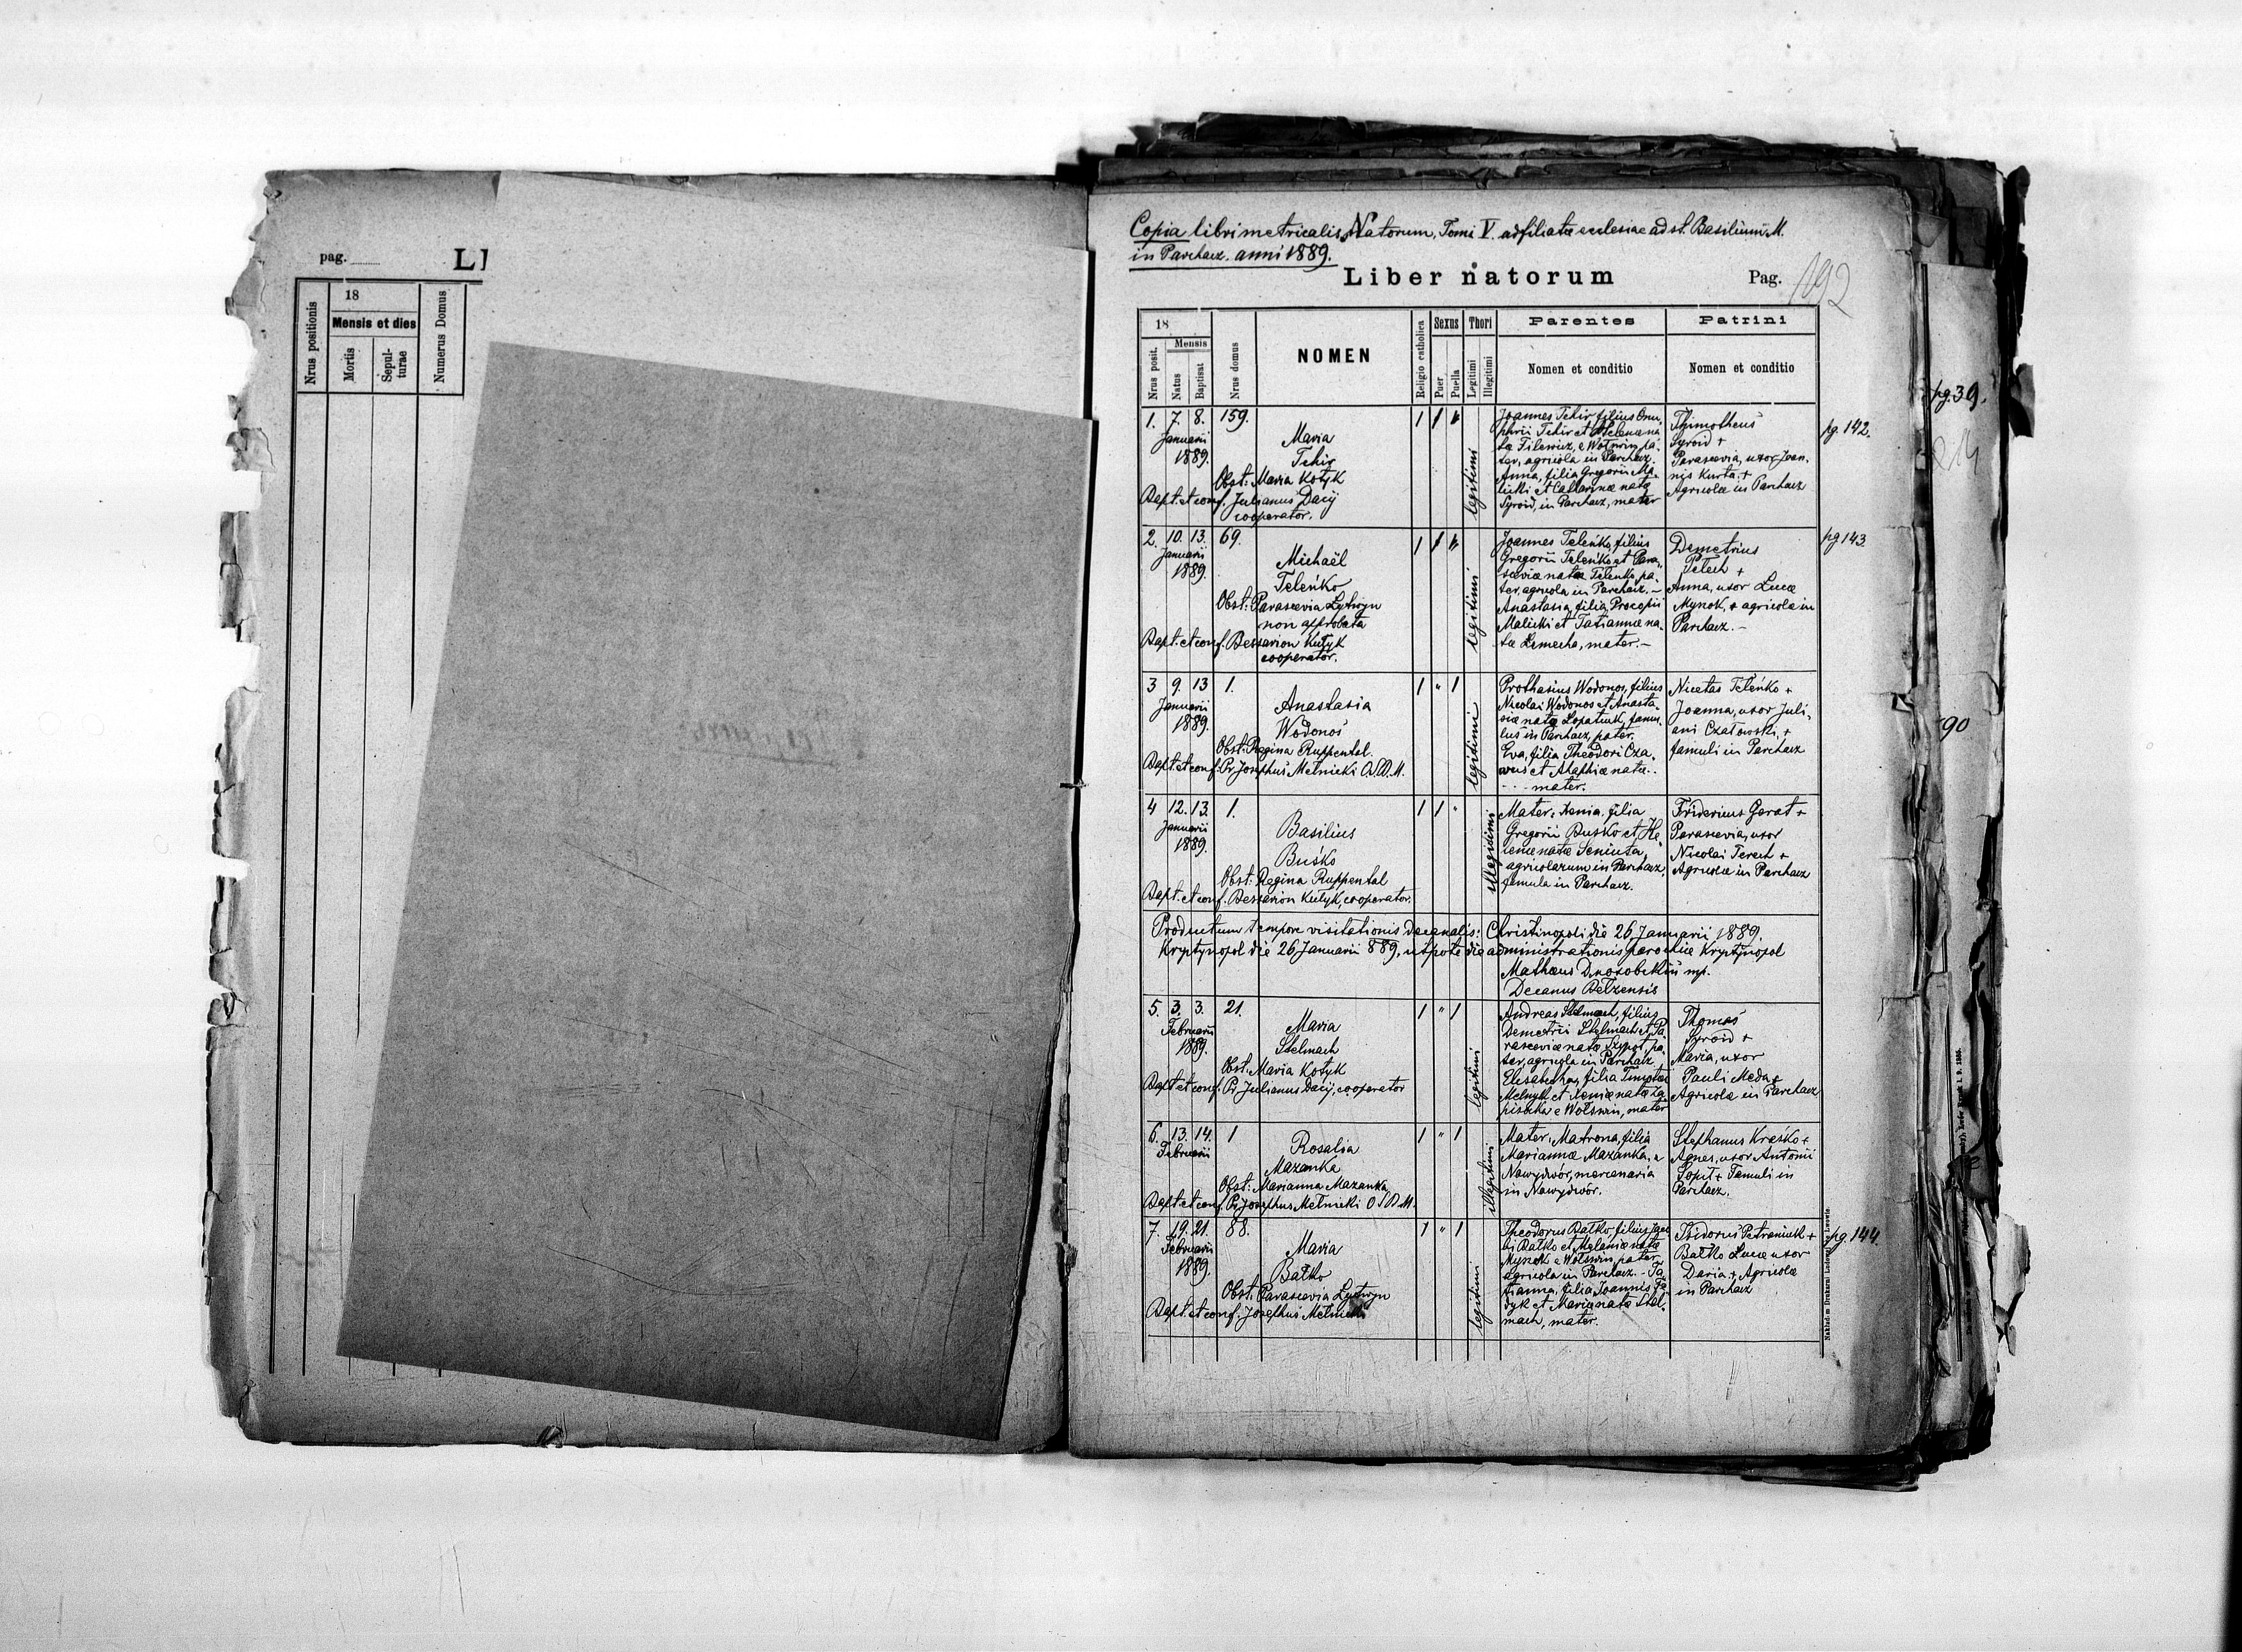 pag.
LI
Nrus positionis
18
Mensis et dies
Mortis
Sepul-
turae
Numerus Domus
Copia libri metricalis Natorum, Tomi V. adfiliatae ecclesiae ad st. Basilium M.
in Parchacz. anni 1889.
Liber natorum
Pag. 192
18
Nrus posit.
Mensis
Natus
Baptisat
Nrus domus
NOMEN
Religio catholica
Sexus
Puer
Puella
Thori
Legitimi
Illegitimi
Parentes
Nomen et conditio
Patrini
Nomen et conditio
1. 7. 8. 159.
Januarii
1889.
Maria
Tchir
Obst: Maria Kotyk
Bapt. et conf. Julianus Dacij
cooperator.
legitimi
Joannes Tchir filius Onu-
phrii Tchir et Helena na-
ta Filewicz, e Wolswin pa-
ter, agricola in Parchacz.
Anna, filia Gregorii Ma-
licki et Catharinae nata
Syroid, in Parchacz, mater
Thimotheus
Syroid +
Parascevia, uxor Joan-
nis Kurta. +
Agricolae in Parchacz
pg. 142.
2. 10. 13. 69.
Januarii
1889.
Michaël
Teleńko
Obst: Parascevia Lytwyn
non approbata
Bapt. et conf. Bessarion Kutyk
cooperator.
legitimi
Joannes Telenko, filius
Gregorii Teleńko et Para-
sceviae natae Telenko pa-
ter, agricola in Parchacz. –
Anastasia, filia Procopii
Malicki et Tatiannae na-
tae Lemecha, mater. –
Demetrius
Petech +
Anna, uxor Lucae
Mynok, + agricola in
Parchacz. –
pg 143
3 9. 13 1.
Januarii
1889.
Anastasia
Wodonos
Obst: Regina Ruppental.
Bapt. et conf. Pr Josephus Melnicki O.S.B.M.
legitimi
Prothasius Wodonos, filius
Nicolai Wodonos et Anasta-
siae natae Lopatiuk, famu-
lus in Parchacz, pater.
Eva, filia Theodori Cza-
wus et Ahaphiae natae..
... mater.
Nicetas Telenko +
Joanna, uxor Juli-
ani Czatowski, +
famuli in Parchacz
4 12. 13. 1.
Januarii
1889.
Basilius
Buśko
Obst: Regina Ruppental
Bapt. et conf. Bessarion Kutyk, cooperator.
illegitimi
Mater: Xenia, filia
Gregorii Busko et He-
lenae natae Seniuta,
agricolarum in Parchacz,
famula in Parchacz.
Fridericus Gerat +
Parascevia, uxor
Nicolai Terech +
Agricolae in Parchacz
Productum tempore visitationis decanalis: Christinopoli die 26 Januarii 1889.
Krystynopol die 26 Januarii 889, utpote die administrationis parochiae Krystynopol
Decanus Belzensis
5. 3. 3. 21.
Februarii
1889.
Maria
Stelmach
Obst: Maria Kotyk
Bapt. et conf. Pr Julianus Dacij, cooperator
legitimi
Andreas Stelmach, filius
Demetrii Stelmach et Pa-
rasceviae natae Szpot, pa-
ter, agricola in Parchacz
Elisabetha, filia Timotei
Melnyk et Xeniae natae La-
pischka e Wolswin, mater
Thomas
Syroid +
Maria, uxor
Pauli Meda +
Agricolae in Parchacz
6. 13. 14. 1
Februarii
Rosalia
Mazanka
Obst: Marianna Mazanka
Bapt. et conf. Pr Josephus Melnicki O S B M.
illegitimi
Mater: Matrona, filia
Mariannae Mazanka, e
Nowydwór, mercenaria
in Nowydwór.
Stephanus Kreśko +
Agnes, uxor Antonii
Sopit + Famuli in
Parchacz.
7. 19. 21. 88.
Februarii
1889.
Maria
Batko
Obst. Parascevia Lytwyn
Bapt. et conf. Josephus Melnicki
legitimi
Theodorus Batko, filius Jaco-
bi Batko et Melaniae natae
Mynok e Wolswin, pater
agricola in Parchacz. - Ta-
tianna, filia Joannis Fe-
dyk et Mariae natae Stel-
mach, mater.
Isidorus Petraniuk +
Batko Lucae uxor
Daria + Agricolae
in Parchacz
pg. 144.
pg. 39.
90